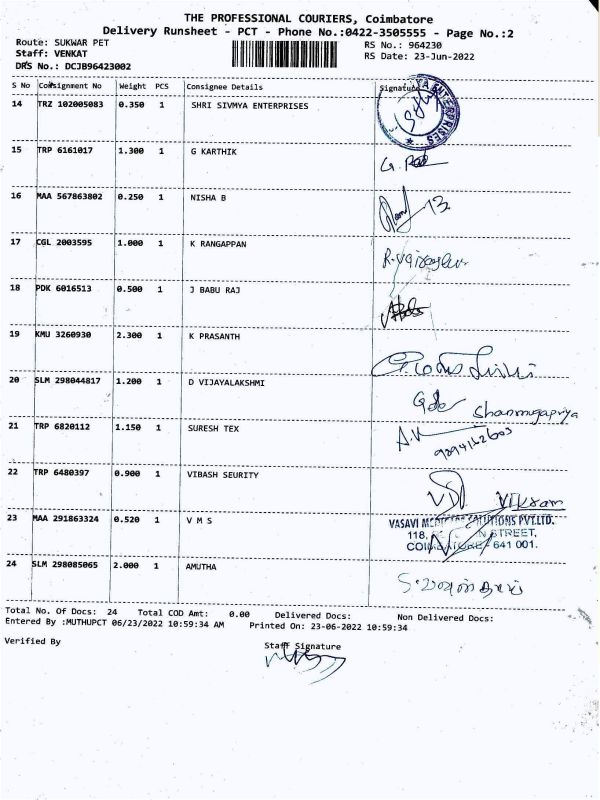 THE PROFESSIONAL COURIERS, Coimbatore
Delivery Runsheet - PCT - Phone No.:0422-3505555 - Page No.:2
Route: SUKWAR PET
RS No.: 964230
Staff: VENKAT
RS Date: 23-Jun-2022
DRS No.: DCJB96423002
S No Consignment No Weight PCS Consignee Details Signature
14 TRZ 102005083 0.350 1 SHRI SIVMYA ENTERPRISES
ENTERPRISES
15 TRP 6161017 1.300 1 G KARTHIK
16 MAA 567863802 0.250 1 NISHA B
17 CGL 2003595 1.000 1 K RANGAPPAN
18 PDK 6016513 0.500 1 J BABU RAJ
19 KMU 3260930 2.300 1 K PRASANTH
20 SLM 298044817 1.200 1 D VIJAYALAKSHMI
Shanmugapriya
21 TRP 6820112 1.150 1 SURESH TEX
A.K
22 TRP 6480397 0.900 1 VIBASH SEURITY
Vikram
23 MAA 291863324 0.520 1 V M S
VASAVI SOLUTIONS PVT.LTD.
118, STREET,
COIMBATORE - 641 001.
24 SLM 298085065 2.000 1 AMUTHA
Total No. Of Docs: 24 Total COD Amt: 0.00 Delivered Docs: Non Delivered Docs:
Entered By :MUTHUPCT 06/23/2022 10:59:34 AM Printed On: 23-06-2022 10:59:34
Verified By
Staff Signature